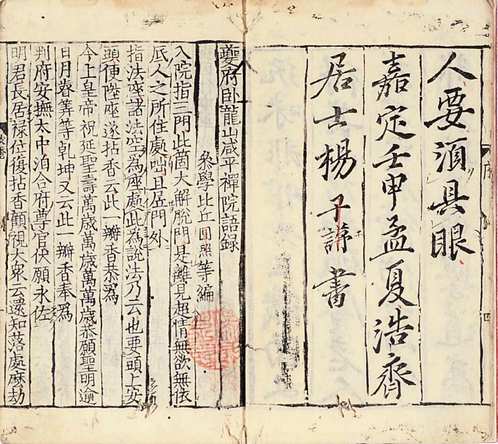 人要須具眼
嘉定壬申孟夏浩齋
居士楊子謨書
夔府臥龍山咸平禪院語錄
參學比丘圓照等編
入院指三門此箇大解脫門是離見超情無欲無依
底人之所住處咄且居門外
指法座諸法空為座處此為說法乃云也要頭上安
頭便陞座遂拈香云此一瓣香恭為
今上皇帝祝延聖壽萬歲萬歲萬萬歲恭願聖明逾
日月春等乾坤又云此一瓣香奉為
判府安撫太中洎合府尊官伏願永佐
明君長居祿位復拈香顧視大衆云還知落處麽劫